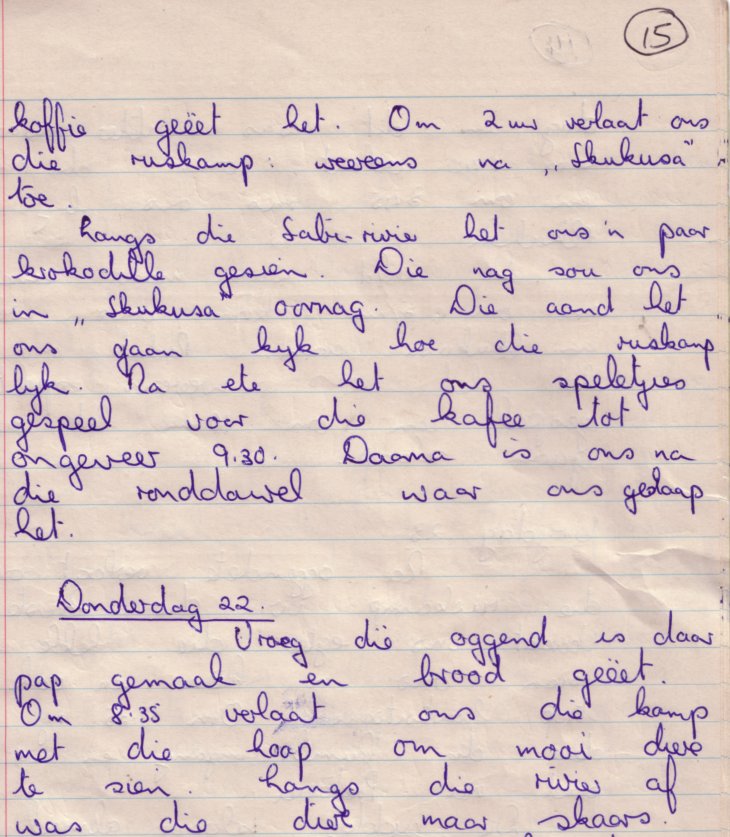 15
koffie geëet het. Om 2 uur verlaat ons
die ruskamp: weereens na „Skukusa"
toe.
Langs die Sabi-rivie het ons 'n paar
krokodille gesien. Die nag sou ons
in „Skukusa" oornag. Die aand het
ons gaan kyk hoe die ruskamp
lyk. Na ete het ons speletjies
gespeel voor die kafee tot
ongeveer 9.30. Daarna is ons na
die ronddawel waar ons geslaap
het.
Donderdag 22.
Vroeg dië oggend is daar
pap gemaak en brood geëet.
Om 8.35 verlaat ons die kamp
met die hoop om mooi diere
te sien. Langs die rivier af
was die diere maar skaars.